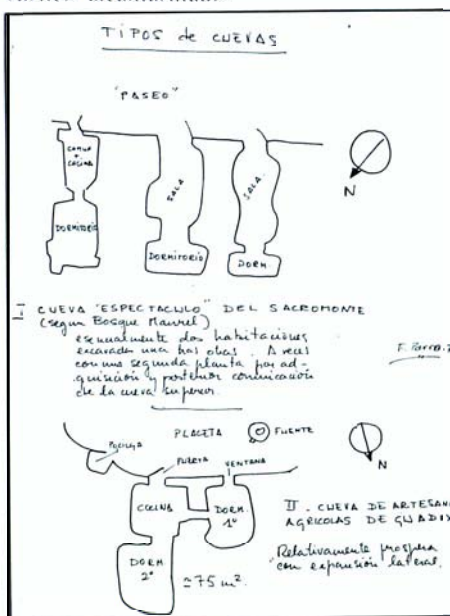 TIPOS de CUEVAS
"PASEO"
COCINA
DORMITORIO
SALA
DORMITORIO
SALA
DORM.
N
I-I CUEVA "ESPECTACULO" DEL SACROMONTE
(segun Bosque Maurel)
esencialmente dos habitaciones
excavadas una tras otra. A veces
con una segunda planta por ad-
quisición y posterior comunicación
de la cueva superior.
PLACETA
FUENTE
PUERTA
VENTANA
N
COCINA
DORM.
1º
DORM
2º
≃75 m².
II. CUEVA DE ARTESANO
AGRICOLAS DE GUADIX
Relativamente prospera
con expansión lateral.